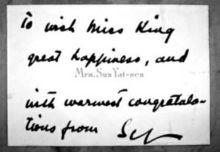 To wish Miss King
great happiness, and
Mrs. Sun Yat-sen
with warmest congratula-
tions from